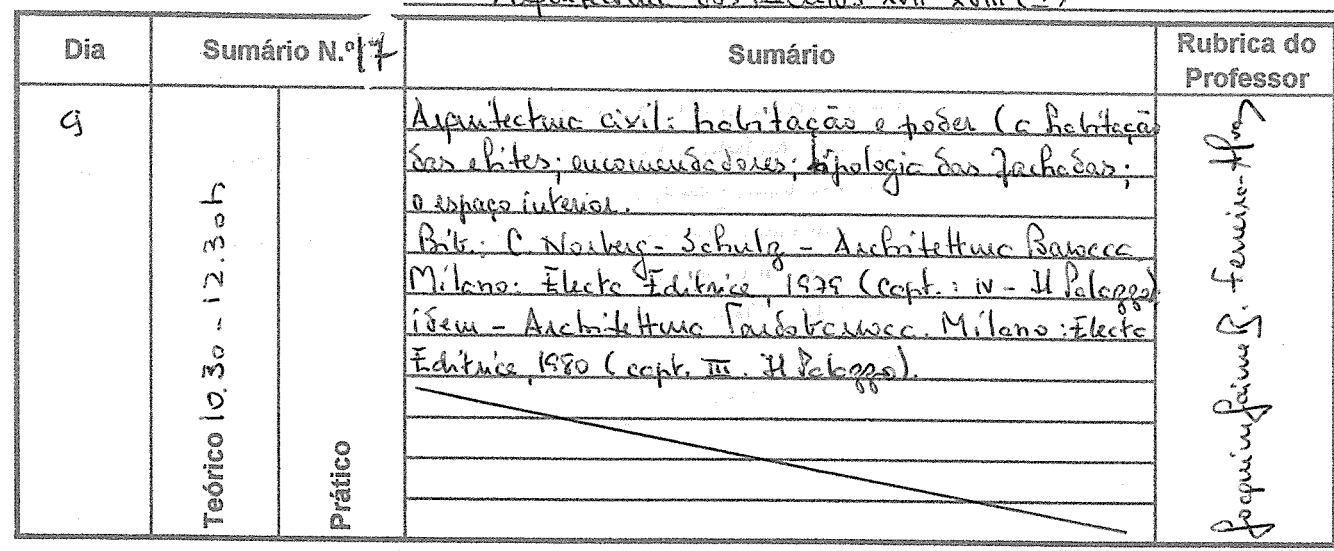 Arquitectura dos séculos XVII-XVIII
Dia
Sumário N.º 17
Sumário
Rubrica do
Professor
9
Teórico 10.30-12.30h
Prático
Arquitectura civil: habitação e poder (a habitação
das elites; encomendadores; tipologia das fachadas;
o espaço interior.
Bib.: C. Norberg-Schulz - Architettura Barocca
Milano: Electa Editrice, 1979 (capt.: IV - Il Palazzo)
idem - Architettura Tardobarocca. Milano: Electa
Editrice, 1980 (capt. III. Il Palazzo).
Joaquim Jaime B. Ferreira-Alves